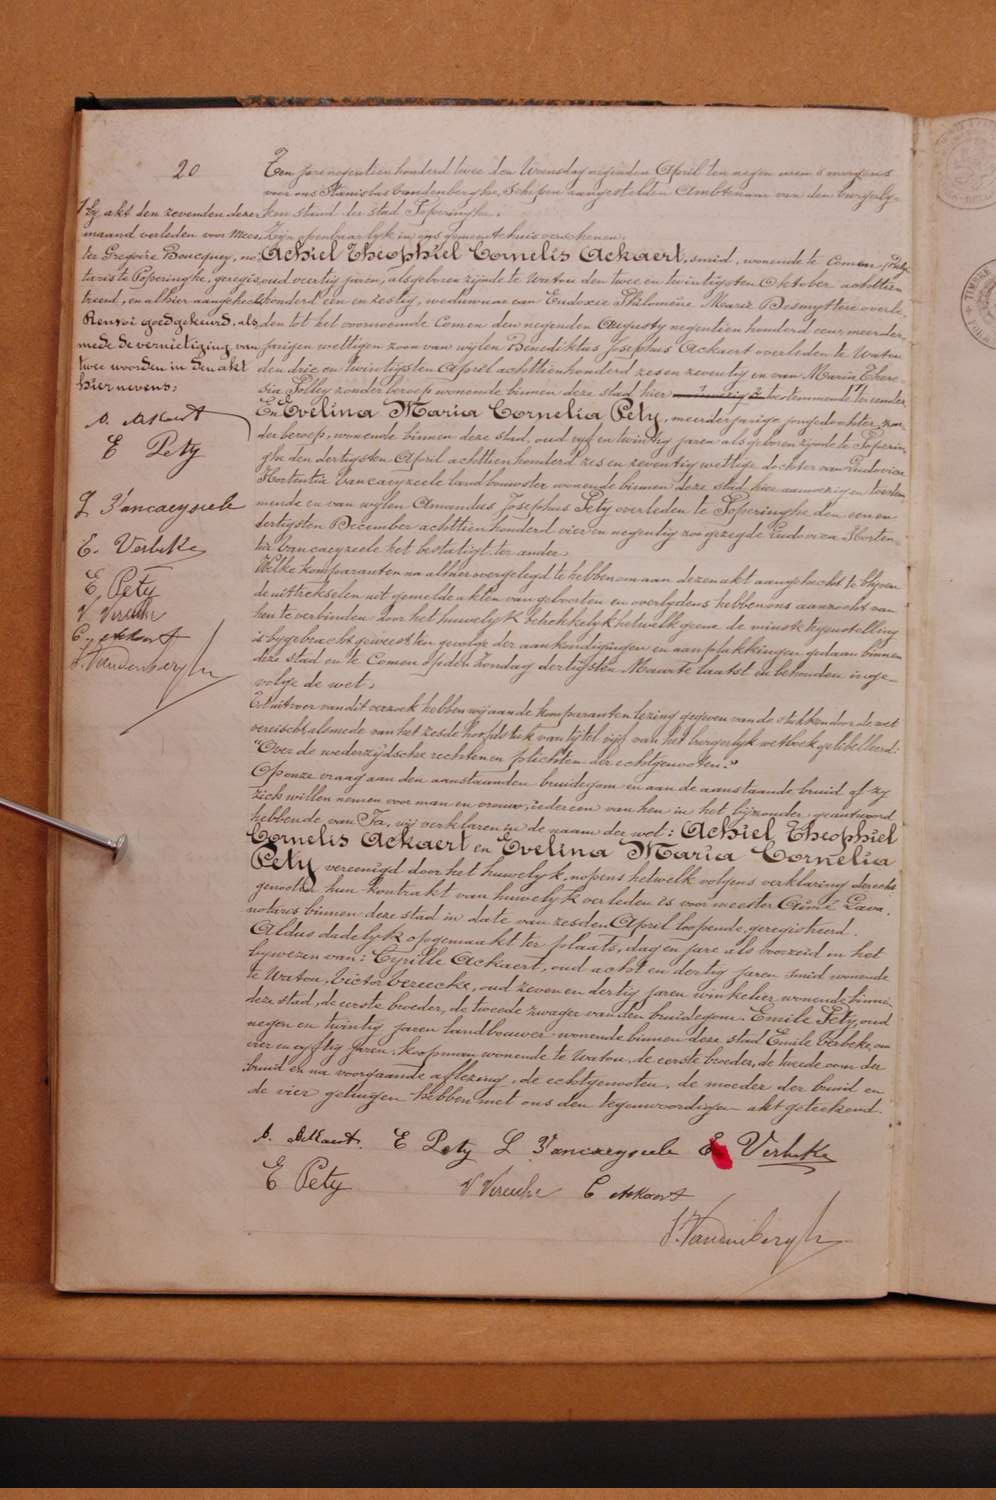 20
1 By akt den zevenden dezer
maand verleden voor Mees-
ter Gregoire Boucquey, no-
taris te Poperinghe, geregis-
treerd, en alhier aangehecht
Renvoi goedgekeurd, als
mede de vernietiging van
twee woorden in den akt
hier nevens;
A. Ackaert
E Pety
L Vancaeyseele
E. Verbeke
E. Pety
V Vereecke
C. Ackaert
S. Vandenberghe
Ten jare negentienhonderd twee den Woensdag negenden April ten negen uren 's morgens
voor ons Stanislas Vandenberghe, Schepen aangestelden Ambtenaar van den burgerly-
ken stand der stad Poperinghe.
Zyn openbaarlyk in ons gemeentehuis verschenen:
Achiel Theophiel Cornelis Ackaert, smid, wonende te Comen
oud veertig jaren, als geboren zijnde te Watou den twee en twintigsten October achttien
honderd een en zestig, weduwnaar van Eudoxie Philomène Marie Desmyttere overle-
den tot het voornoemde Comen den negenden Augusty negentien honderd een, meerder-
jarigen wettigen zoon van wylen Benediktus Josephus Ackaert overleden te Watou
den drie en twintigsten April achttienhonderd zes en zeventig en van Maria There-
sia Polley zonder beroep wonende binnen deze stad hier toestemmende
En Evelina Maria Cornelia Pety, meerderjarige jongedochter, zon-
der beroep, wonende binnen deze stad, oud vyf en twintig jaren als geboren zynde te Poperin-
ghe den dertigsten April achttienhonderd zes en zeventig wettige dochter van Ludovica
Hortentia Vancaeyzeele landbouwster wonende binnen deze stad hier aanwezig en toestem-
mende en van wylen Amandus Josephus Pety overleden te Poperinghe den een en
dertigsten December achttienhonderd vier en negentig zoo gezegde Ludovica Horten-
tia Vancaeyzeele het bestatigt ter ander.
Welke komparanten na alhier overgelegd te hebben om aan dezen akt aangehecht te blyven
de uittrekselen uit gemelde akten van geboorten en overlydens hebben ons aanzocht van
hen te verbinden door het huwelyk betrekkelyk hetwelk geene de minste tegenstelling
is bygebracht geweest ten gevolge der aankondigingen en aanplakkingen gedaan binnen
deze stad en te Comen op den Zondag dertigsten Maarte laatst en behouden inge-
volge de wet.
Et uitvoer van dit verzoek hebben wy aan de komparanten lezing gegeven van de stukken door de wet
vereischt, alsmede van het zesde hoofdstuk van tijtel vijf van het burgerlyk wetboek gelibelleerd:
"Over de wederzijdsche rechten en plichten der echtgenooten."
Op onze vraag aan den aanstaanden bruidegom en aan de aanstaande bruid of zy
zich willen nemen voor man en vrouw, ieder een van hen in het bijzonder geantwoord
hebbende van Ja, wij verklaren in de naam der wet: Achiel Theophiel
Cornelis Ackaert en Evelina Maria Cornelia
Pety vereenigd door het huwelyk, nopens hetwelk volgens verklaring der echt-
genooten hun kontrakt van huwelyk verleden is voor meester Aimé Lava,
notaris binnen deze stad in date van zesden April loopende, geregistreerd.
Aldus dadelyk opgemaakt ter plaats, dag en jare als voorzeid in het
bywezen van: Cyrille Ackaert, oud acht en dertig jaren smid wonende
te Watou, Victor Vereecke, oud zeven en dertig jaren winkelier wonende binnen
deze stad, de eerste broeder, de tweede zwager van den bruidegom. Emile Pety, oud
negen en twintig jaren landbouwer wonende binnen deze stad Emile Verbeke, oud
vier en vyftig jaren, koopman wonende te Watou, de eerste broeder, de tweede oom der
bruid en na voorgaande aflezing, de echtgenooten, de moeder der bruid en
de vier getuigen hebben met ons den tegenwoordigen akt geteekend.
A. Ackaert. E Pety L Vancaeyseele E Verbeke
E Pety V Vereecke C Ackaert
S. Vandenberghe